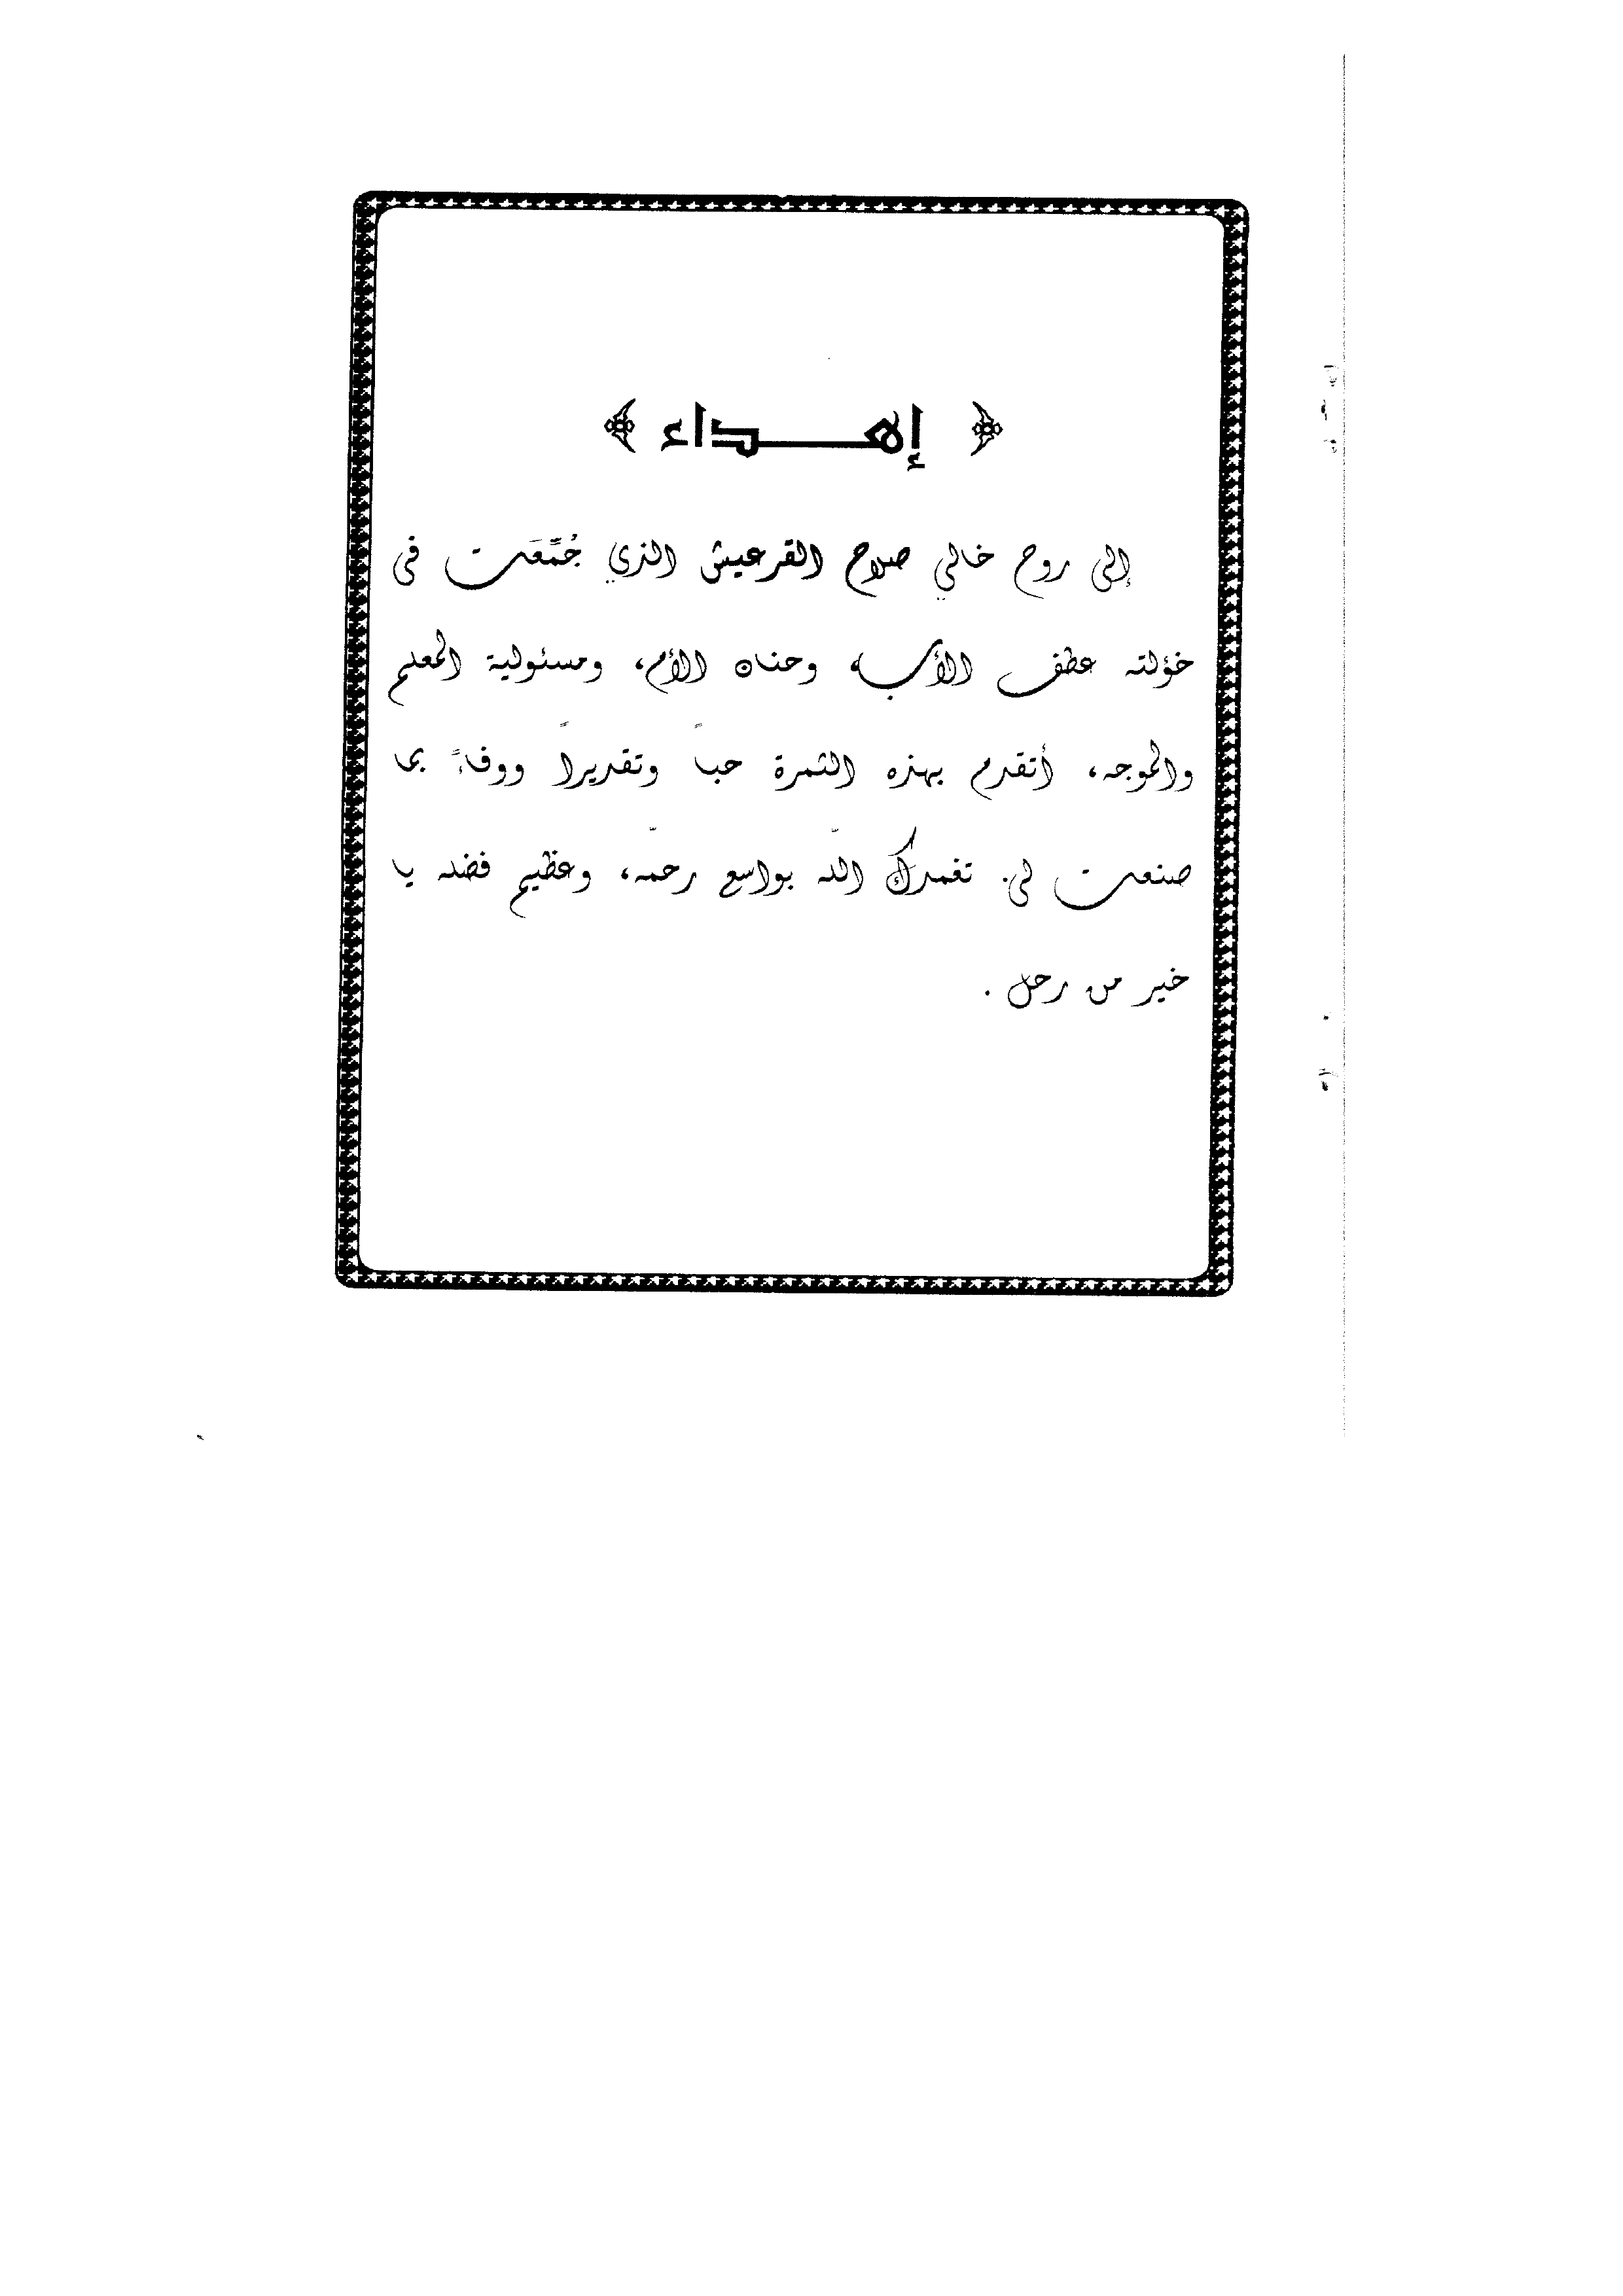 ﴿ إهــــداء ﴾
إلى روح خالي صلاح القرعيش الذي جُمِّعَت فى
خؤلته عطف الأب، وحنان الأم، ومسئولية المعلم
والموجه، أتقدم بهذه الثمرة حباً وتقديراً ووفاءً بما
صنعت لى. تغمدك اللّه بواسع رحمّه، وعظيم فضله يا
خير من رحل .